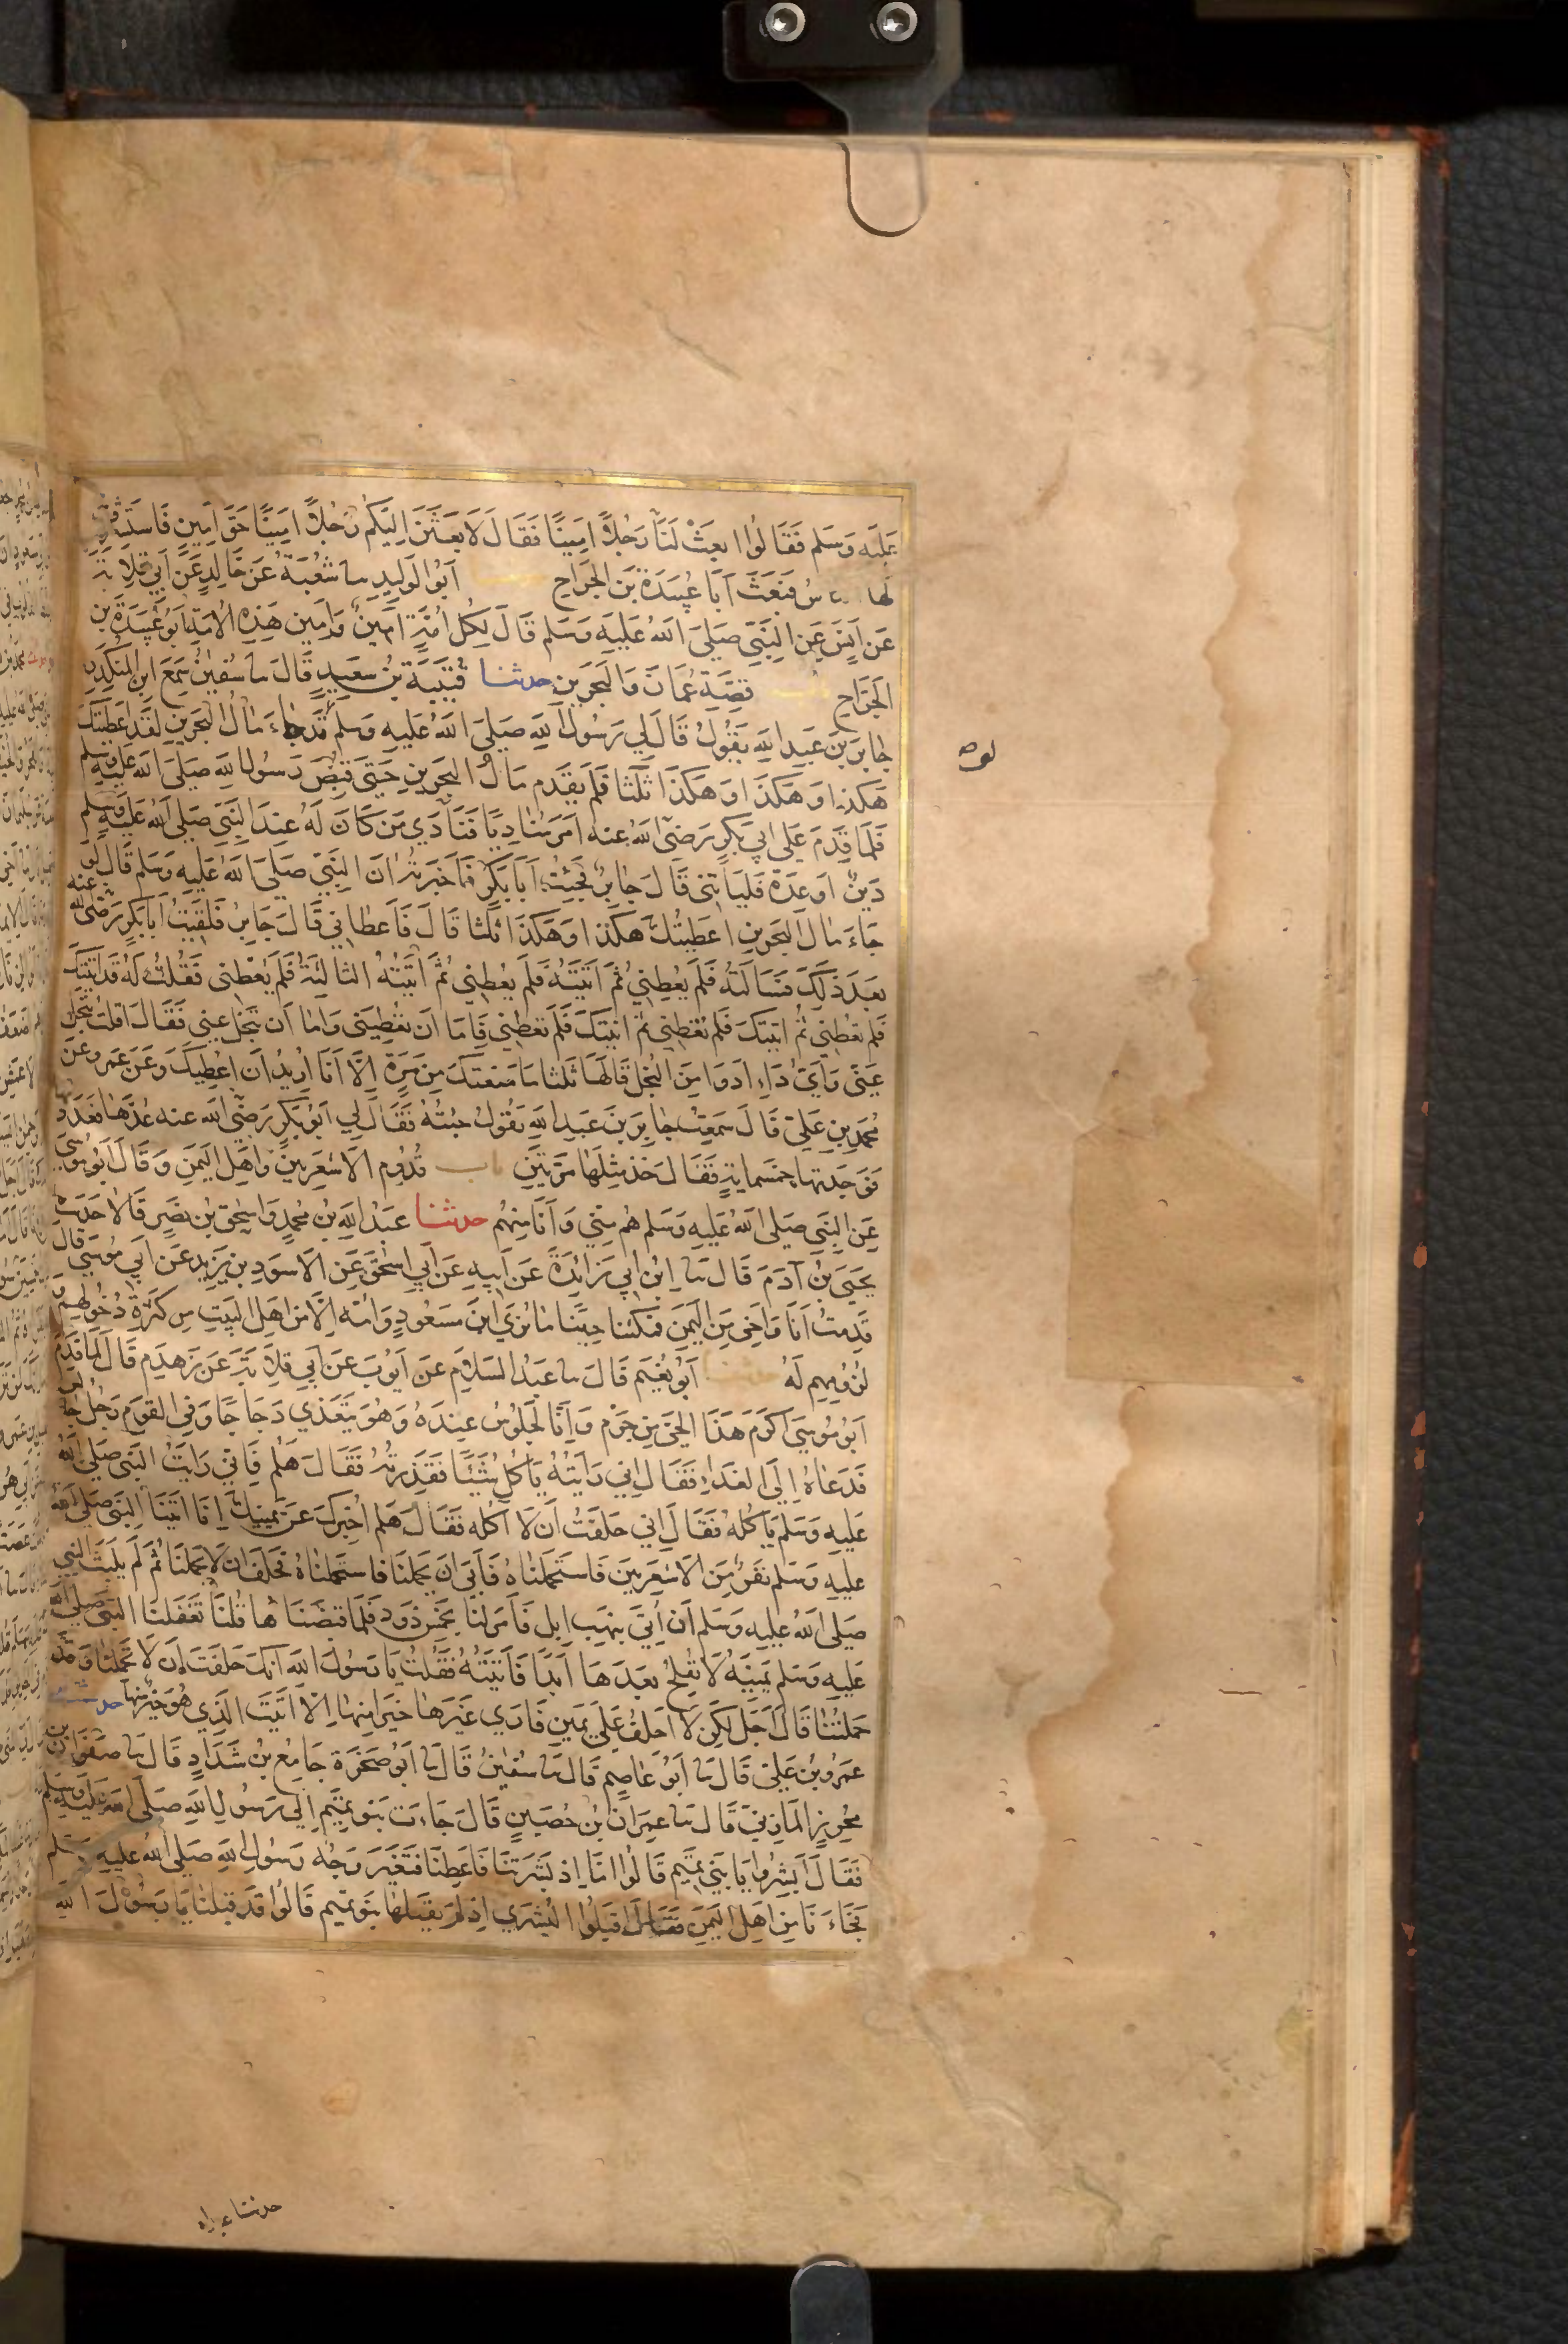 عَلَيْهِ وَسَلم فَقَالُوا ابعَثْ لَنَا رَجُلاً امِينًا فَقَالَ لَابعَثَنَّ اِلَيْكُم رَجُلاً امِينًا حَقَّ اَمِينٍ فَاستَشرَفَ
لَهَا الناسُ فَبَعَثَ اَبَا عُبَيدَةَ بنَ الجَرَاحِ اَبُو الوَلِيدِ سا شُعْبَةُ عَن خَالِدٍ عَن اَبِي قِلَابَةَ
عَن اَنَسٍ عَنِ النَبيّ صَلىَ اللهُ عَلَيهِ وَسَلم قَالَ لِكُلِ امَّةٍ امِينٌ وَامِين هَذِهِ الامَةِ ابَو عُبَيدَةَ بن
الجَرَّاحِ باب قِصَّةِ عُمَانَ وَالبَحرَينِ حدثنا قُتَيبَةُ بنُ سَعِيدٍ قَالَ سا سُفينُ سَمِعَ ابنَ المنكَدِرِ
جَابِرَ بنَ عَبدِ اللهِ يَقُولُ قَالَ لِي رَسُولُ اللهِ صَلىَ اللهُ عَلَيهِ وَسَلم قَد جَاءَ مَالُ البَحرَينِ لَقَد اَعطَيتُكَ
هَكَذا وَهَكَذَا وَهَكَذَا ثَلثًا فَلَم يَقدَم مَالُ البَحرَينِ حَتَّى قُبِضَ رَسُولُ اللهِ صَلىَ اللهُ عَلَيهِ وَسَلم
فَلَمَّا قَدِمَ عَلى ابِي بَكرٍ رَضىَ اللهُ عنه امَرَ مُنَادِيًا فَنَادَى مَن كَانَ لَهُ عِندَ النَبيّ صَلى اللهُ عَلَيهِ وسلم
دَينٌ اَو عِدَةٌ فَليَاتِني قَالَ جَابِرٌ فَجِئتُ اَبَا بَكرٍ فَاَخبَرتُهُ انَ النَبِيّ صَلىَ اللهُ عَلَيهِ وَسَلم قَالَ لَو
جَاءَ مَالُ البَحرَينِ اعطَيتُكَ هَكَذا وَهَكَذَا ثَلثًا قَالَ فَاَعطَانِي قَالَ جَابِرٌ فَلَقِيتُ اَبَا بَكرٍ رَضىَ الله عنه
بَعدَ ذَلكَ فَسَاَلتُهُ فَلَم يُعطِنِي ثُمَّ اَتَيتُهُ فَلَم يُعطِنِي ثُمَّ اَتَيتُهُ الثالِثَةَ فَلَم يُعطِني فَقُلتُ لَهُ قَد اتَيتُكَ
فَلَم تُعطِني ثُم اتَيتُكَ فَلَم تُعطِني ثُم اتَيتُكَ فَلَم تُعطِنِي فَاِمَا ان تُعطِيَنِي وَاما اَن تَبخَلَ عَنِي فَقَالَ اقُلتَ تَبخَلُ
عَنّي وَاَيُّ دَاءٍ ادوَا مِنَ البُخلِ قَالَهَا ثَلثًا مَا مَنَعتُكَ مِن مَرَّةٍ اِلّا اَنَا اُرِيدُ ان اعطِيَكَ وَعَن عَمرو عَن
مُحمدِ بنِ عَليّ قَالَ سَمِعتُ جَابِرَ بنَ عَبدِ اللهِ يَقُولُ جِئتُهُ فَقَالَ لِي ابَو بَكرٍ رَضىَ الله عنه عُدَّهَا فَعَدَدتُهَا
فَوَجَدتها خمسَمايةٍ فَقَالَ خُذ مِثلَهَا مَرَّتَينِ باب قُدُومِ الاشعَرِيينَ وَاهلِ اليَمَنِ وَقَالَ اَبُو مُوسَى
عَنِ النَبيِ صَلى اللهُ عَلَيهِ وَسَلم هُم مِنِي وَاَنَا مِنهُم حدثنا عَبدُ اللهِ بنُ مُحمدٍ وَاِسحقُ بنُ نَصرٍ قَالَا حَدَثَنا
يَحيَى بنُ آدَمَ قَالَ سا ابنُ اَبِي زَائِدَةَ عَن اَبِيهِ عَن اَبِي اسحَقَ عَنِ الاسوَدِ بنِ يَزِيدَ عَن اَبِي مُوسَى قال
قَدِمتُ اَنَا وَاَخِى مِنَ اليَمَنِ فَمَكَثنَا حِينًا مَا نُرَى ابنَ مَسعُودٍ وَامَّهُ اِلَّا مِن اَهلِ البَيتِ مِن كَثرَةِ دُخُولِهِم
لُزُومِهِم لَهُ اَبُو نُعَيمٍ قَالَ سا عَبدُ السَلَامِ عَن اَيُوبَ عَن اَبِي قِلَابَةَ عَن زَهدَمٍ قَالَ لَمَّا قَدِمَ
اَبُو مُوسىَ اَكرَمَ هَذَا الحَىَّ مِن جَرمٍ وَاِنَّا لَجُلُوسٌ عِندَهُ وَهُوَ يَتَغَدّى دَجَاجًا وَفِى القَومِ رَجُلٌ جَالس
فَدَعَاهُ اِلَى الغَدَاءِ فَقَالَ اِنِي رَاَيتُهُ يَاكُلُ شَيئًا فَقَذِرتُهُ فَقَالَ هَلُم فَاِنِّي رَايَتُ النَبىَّ صَلى اللهُ
عَلَيهِ وَسَلم يَاكُلُهُ فَقَالَ اِنِي حَلَفتُ اَن لَا آكُلَهُ فَقَالَ هَلم اُخبِركَ عَن يَمِينِكَ اِنَّا اتَينَا النَبىَ صَلى الله
عَليهِ وَسَلم نَفَرٌ مِنَ الاشعَرِيينَ فَاستَحمَلنَاهُ فَاَبَى اَن يَحمِلَنَا فَاستَحمَلنَاهُ فَحَلَفَ ان لَا يَحمِلَنَا ثُمَّ لَم يَلبَث النَبِي
صَلى اللهُ عليهِ وَسَلم اَن اُتِىَ بِنَهبِ ابِلٍ فَاَمَرَ لَنَا بِخَمسِ ذَودٍ فَلَمَّا قَبَضنَاهَا قُلنَا تَغَفَّلنَا النَبىَ صَلى الله
عَلَيهِ وَسَلم يَمِينَهُ لَا نُفلِحُ بَعدَهَا اَبَدًا فَاَتَيتُهُ فَقُلتُ يَا رَسُولَ اللهِ اَنكَ حَلَفتَ اَن لَا تَحمِلَنَا وَقَد
حَمَلتَنَا قَالَ اَجَل لَكِن لَا احلِفُ عَلَى يَمِينٍ فَارَى غَيرَهَا خَيرًا مِنهَا اِلَّا اَتَيتَ الَذِي هُوَ خَيرٌ مِنهَا حدثنا
عَمرُو بنُ عَلِيّ قَالَ سا اَبُو عَاصِمٍ قَالَ سا سُفينُ قَالَ سا اَبُو صَخرَةَ جَامِعُ بنُ شَدَّادٍ قَالَ سا صَفوَانُ بنُ
مُحرِزٍ المَازِنِيّ قَالَ سا عِمرَانُ بنُ حُصَينٍ قَالَ جَاءَت بَنو تَمِيمٍ اِلَى رَسُولِ اللهِ صَلى الله عليه وسلم
فَقَالَ ابشِرُوا يَا بَنِي تمِيمٍ قَالُوا امَّا اِذ بَشَّرتَنَا فَاَعطِنَا فَتَغَيَّرَ وَجهُ رَسُولِ اللهِ صَلى اللهُ عليه وسلم
فجَاءَ نَاسٌ مِن اهلِ اليَمَنِ فَقَالَ اقبَلُوا البُشرَى اِذ لَم يَقبَلهَا بَنو تَمِيم قَالُوا قَد قَبِلنَا يَا رَسُولَ اللهِ
حدثنا عبد الله